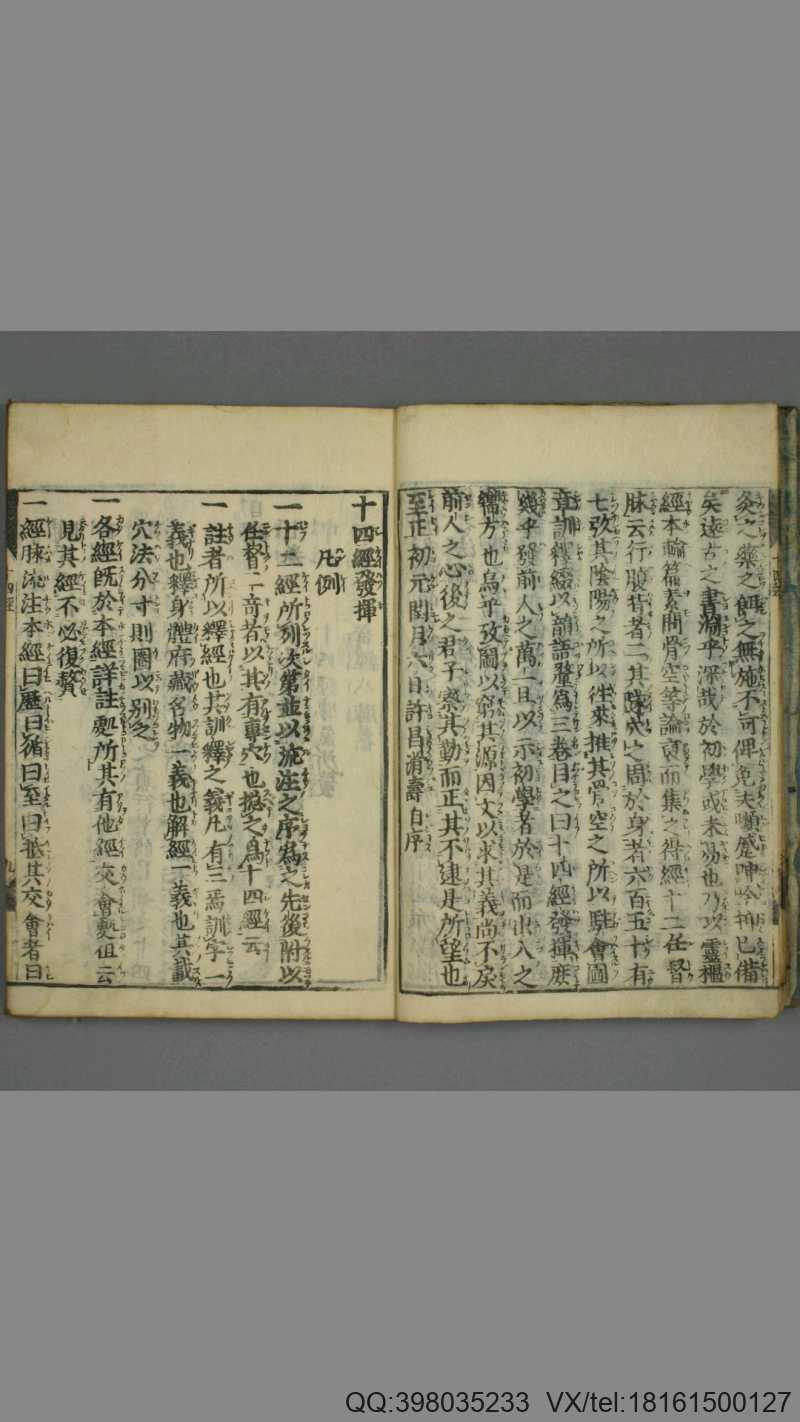 灸之藥之餌之無施不可俾免夫嚬蹙呻吟抑已備
矣遠古之書淵乎深哉於初學或未易也乃以靈樞
經本輸篇素問骨空等論裒而集之得經十二任督
脉云行腹背者二其隧穴之周於身者六百五十有
七攷其陰陽之所以往來推其骨空之所以駐會圖
章訓釋綴以韻語釐爲三卷目之曰十四經發揮庶
幾乎發前人之萬一且以示初學者於是而出入之
嚮方也烏乎攷圖以窮其源因文以求其義尚不戾
前人之心後之君子察其勤而正其不逮是所望也
至正初元閏月六日許昌滑壽自序
十四經發揮
凡例
一十二經所列次第並以流注之序爲之先後附以
任督二奇者以其有專穴也摠之爲十四經云
一註者所以釋經也其訓釋之義凡有三焉訓字一
義也釋身體府藏名物一義也解經一義也其載
穴法分寸則圈以别之
一各經既於本經詳註處所其有他經交會處但云
見某經不必復贅
一經脉流注本經曰歷曰循曰至曰抵其交會者曰